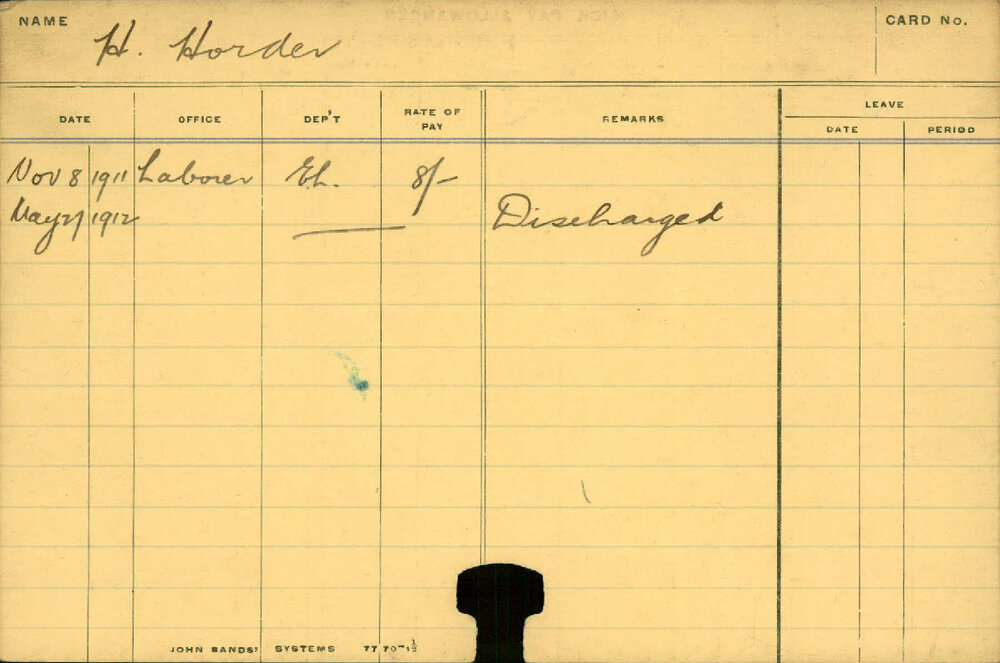 NAME H. Horder CARD No.
DATE OFFICE DEP'T RATE OF PAY REMARKS LEAVE
DATE PERIOD
Nov 8 1911 Laborer EL. 8/-
May 21 1912 Discharged
JOHN SANDS' SYSTEMS 77 70-1½